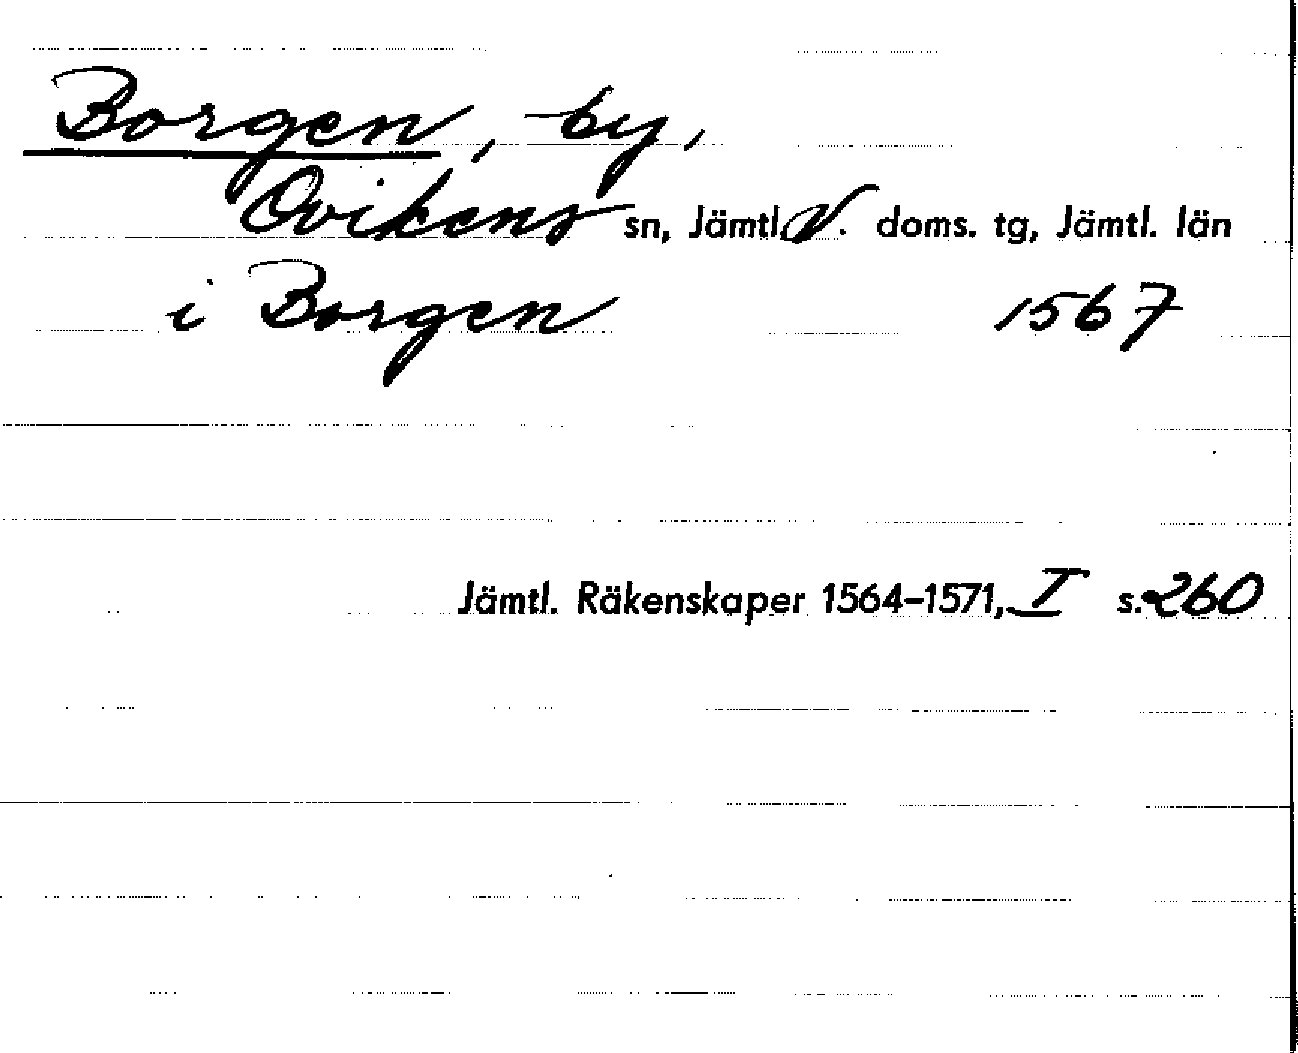 Borgen, by,
Ovikens sn, Jämtl. V. doms. tg, Jämtl. län
i Borgen 1567
Jämtl. Räkenskaper 1564-1571, I s. 260